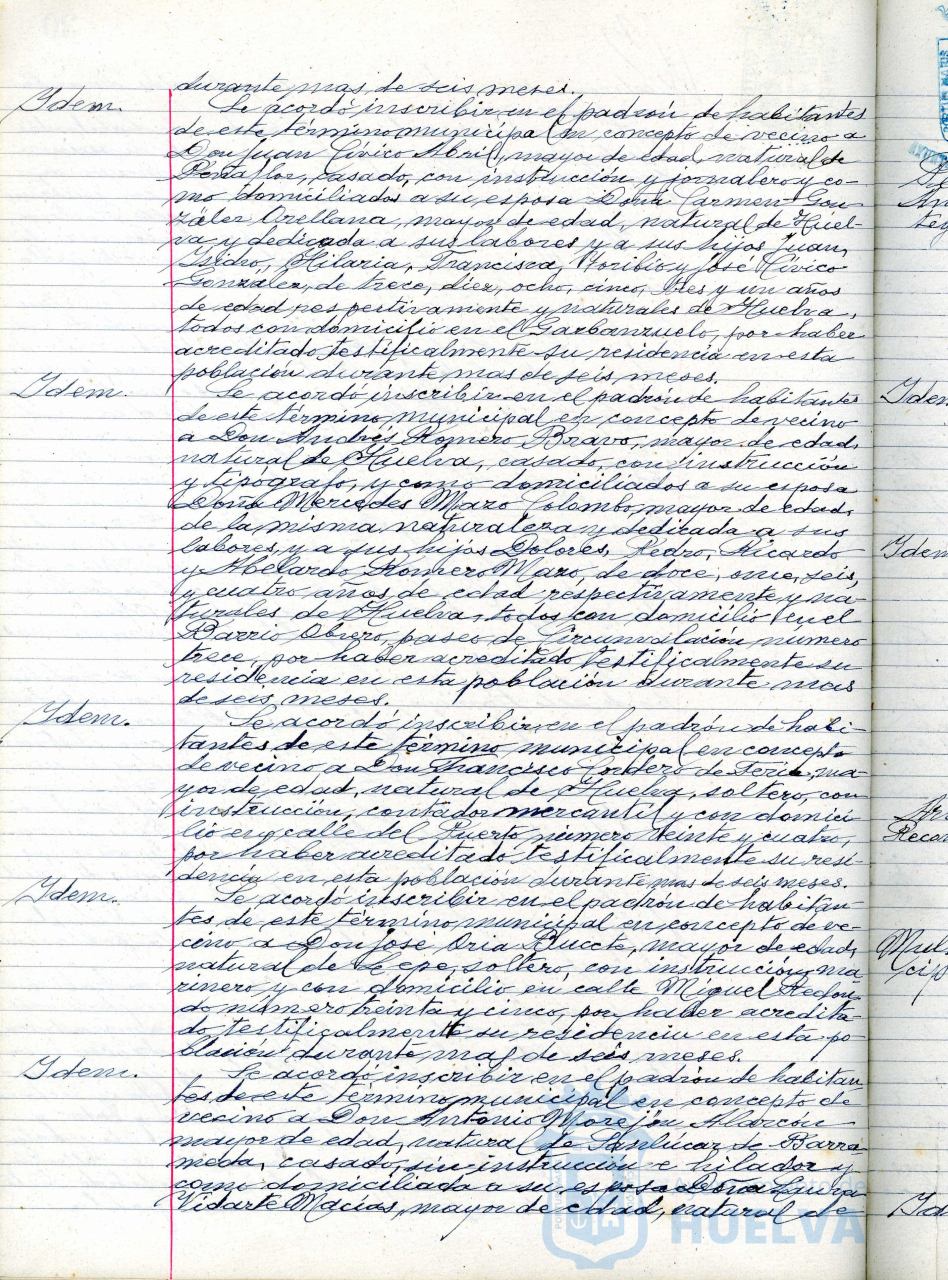 durante mas de seis meses.
Idem.
Se acordó inscribir en el padrón de habitantes
de este término municipal en concepto de vecino a
Don Juan Cívico Abril, mayor de edad, natural de
Peñaflor, casado, con instrucción y jornalero y co-
mo domiciliados a su esposa Doña Carmen Gon-
zález Orellana, mayor de edad, natural de Huel-
va y dedicada a sus labores y a sus hijos Juan,
Isidro, Hilaria, Francisca, Toribio y José Cívico
González, de trece, diez, ocho, cinco, tres y un años
de edad respectivamente y naturales de Huelva,
todos con domicilio en el Garbanzuelo, por haber
acreditado testificalmente su residencia en esta
población durante mas de seis meses.
Idem.
Se acordó inscribir en el padrón de habitantes
de este término municipal en concepto de vecino
a Don Andrés Romero Bravo, mayor de edad,
natural de Huelva, casado, con instrucción
y tipografo, y como domiciliados a su esposa
Doña Mercedes Mazo Colombo, mayor de edad,
de la misma naturaleza y dedicada a sus
labores, y a sus hijos Dolores, Pedro, Ricardo
y Abelardo Romero Mazo, de doce, once, seis,
y cuatro años de edad respectivamente y na-
turales de Huelva, todos con domicilio en el
Barrio Obrero, paseo de Circunvalación número
trece, por haber acreditado testificalmente su
residencia en esta población durante mas
de seis meses.
Idem.
Se acordó inscribir en el padrón de habi-
tantes de este término municipal en concepto
de vecino a Don Francisco Cordero de Feria, ma-
yor de edad, natural de Huelva, soltero, con
instrucción, contador mercantil y con domici-
lio en calle del Puerto número veinte y cuatro,
por haber acreditado testificalmente su resi-
dencia en esta población durante mas de seis meses.
Idem.
Se acordó inscribir en el padrón de habitan-
tes de este término municipal en concepto de ve-
cino a Don José Oria, mayor de edad,
natural de Lepe, soltero, con instrucción, ma-
rinero y con domicilio en calle Miguel Redon-
do número treinta y cinco, por haber acredita-
do testificalmente su residencia en esta po-
blación durante mas de seis meses.
Idem.
Se acordó inscribir en el padrón de habitan-
tes de este término municipal en concepto de
vecino a Don Antonio Morejón Alarcón
mayor de edad, natural de Sanlúcar de Barra-
meda, casado, sin instrucción e hilador y
como domiciliada a su esposa Doña Laura
Vidarte Macías, mayor de edad, natural de
Ayuntamiento de
HUELVA